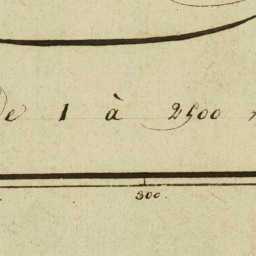 de 1 à 2500
300